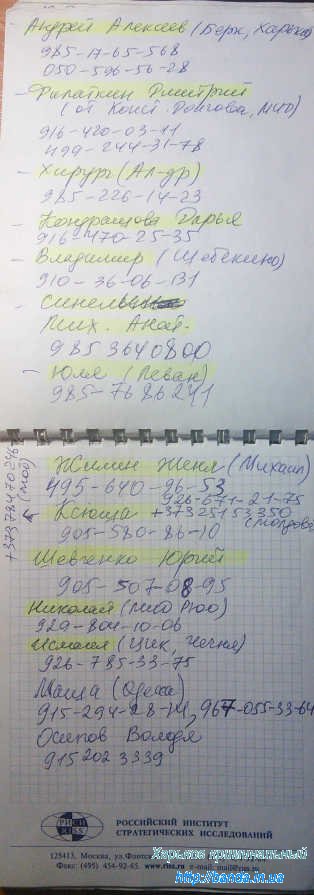 Андрей Алексеев (Берж, Харьков)
985-17-65-568
050-596-56-28
- Филаткин Дмитрий
(от Конст. Долгова, МИД)
916-420-03-11
499-244-31-78
- Хирургъ (Ал-др)
985-226-14-23
- Кондрашова Дарья
916-470-25-35
- Владимир (Шебекино)
910-36-06-131
-
Мих. Анат.
9853640800
- Юля (Леван)
985-7686241
Жилин Женя (Михаил)
495-640-96-53
926-671-21-75
Ксюша +37325153350
(молдова)
+37378470246
(моб)
905-580-86-10
Шевченко Юрий
905-507-08-95
Николай
929-804-10-06
Исмаил (Цик, Чечня)
926-785-33-75
Маша (Одесса)
915-294-28-14, 967-055-33-64
Осипов Володя
915 202 3339
РИСИ
RISS
РОССИЙСКИЙ ИНСТИТУТ
СТРАТЕГИЧЕСКИХ ИССЛЕДОВАНИЙ
125413, Москва, ул.Флотская
Факс: (495) 454-92-65.
Харьков криминальный
http://banda.at.ua